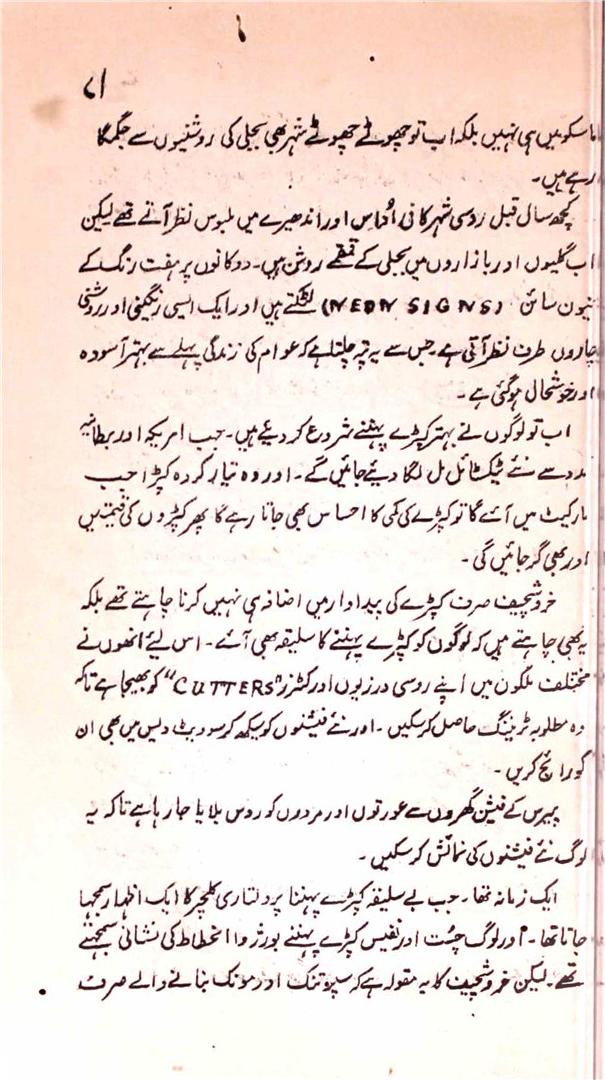 ۷۱
ماسکو میں ہی نہیں بلکہ اب تو چھوٹے چھوٹے شہر بھی بجلی کی روشنیوں سے جگمگا
رہے ہیں۔
کچھ سال قبل روسی شہر کافی اُداس اور اندھیرے میں ملبوس نظر آتے تھے لیکن
اب گلیوں اور بازاروں میں بجلی کے قمقمے روشن ہیں۔ دوکانوں پر ہفت رنگ کے
نیون سائن (NEON SIGNS) لٹکتے ہیں اور ایک ایسی رنگینی اور روشنی
چاروں طرف نظر آتی ہے۔ جس سے یہ پتہ چلتا ہے کہ عوام کی زندگی پہلے سے بہتر آسودہ
اور خوشحال ہوگئی ہے۔
اب تو لوگوں نے بہتر کپڑے پہننے شروع کر دیئے ہیں۔ جب امریکہ اور برطانیہ
مدد سے نئے ٹیکسٹائل مل لگا دیئے جائیں گے۔ اور وہ تیار کردہ کپڑا جب
مارکیٹ میں آئے گا تو کپڑے کی کمی کا احساس بھی جاتا رہے گا پھر کپڑوں کی قیمتیں
اور بھی گر جائیں گی۔
خروشچیف صرف کپڑے کی پیداوار میں اضافہ ہی نہیں کرنا چاہتے تھے بلکہ
یہ بھی چاہتے ہیں کہ لوگوں کو کپڑے پہننے کا سلیقہ بھی آئے۔ اس لیئے انھوں نے
مختلف ملکوں میں اپنے روسی درزیوں اور کٹرز "CUTTERS" کو بھیجا ہے تاکہ
وہ مطلوبہ ٹریننگ حاصل کر سکیں۔ اور نئے فیشنوں کو سیکھ کر سوویٹ دیس میں بھی ان
کو رائج کریں۔
پیرس کے فیشن گھروں سے عورتوں اور مردوں کو روس بلایا جا رہا ہے تاکہ یہ
لوگ نئے فیشنوں کی نمائش کر سکیں۔
ایک زمانہ تھا۔ جب بے سلیقہ کپڑے پہننا پرولتاری کلچر کا ایک اظہار سمجھا
جاتا تھا۔ اور لوگ چست اور نفیس کپڑے پہننے بورژوا انحطاط کی نشانی سمجھتے
تھے۔ لیکن خروشچیف کا یہ مقولہ ہے کہ سپوتنک اور مونک بنانے والے صرف